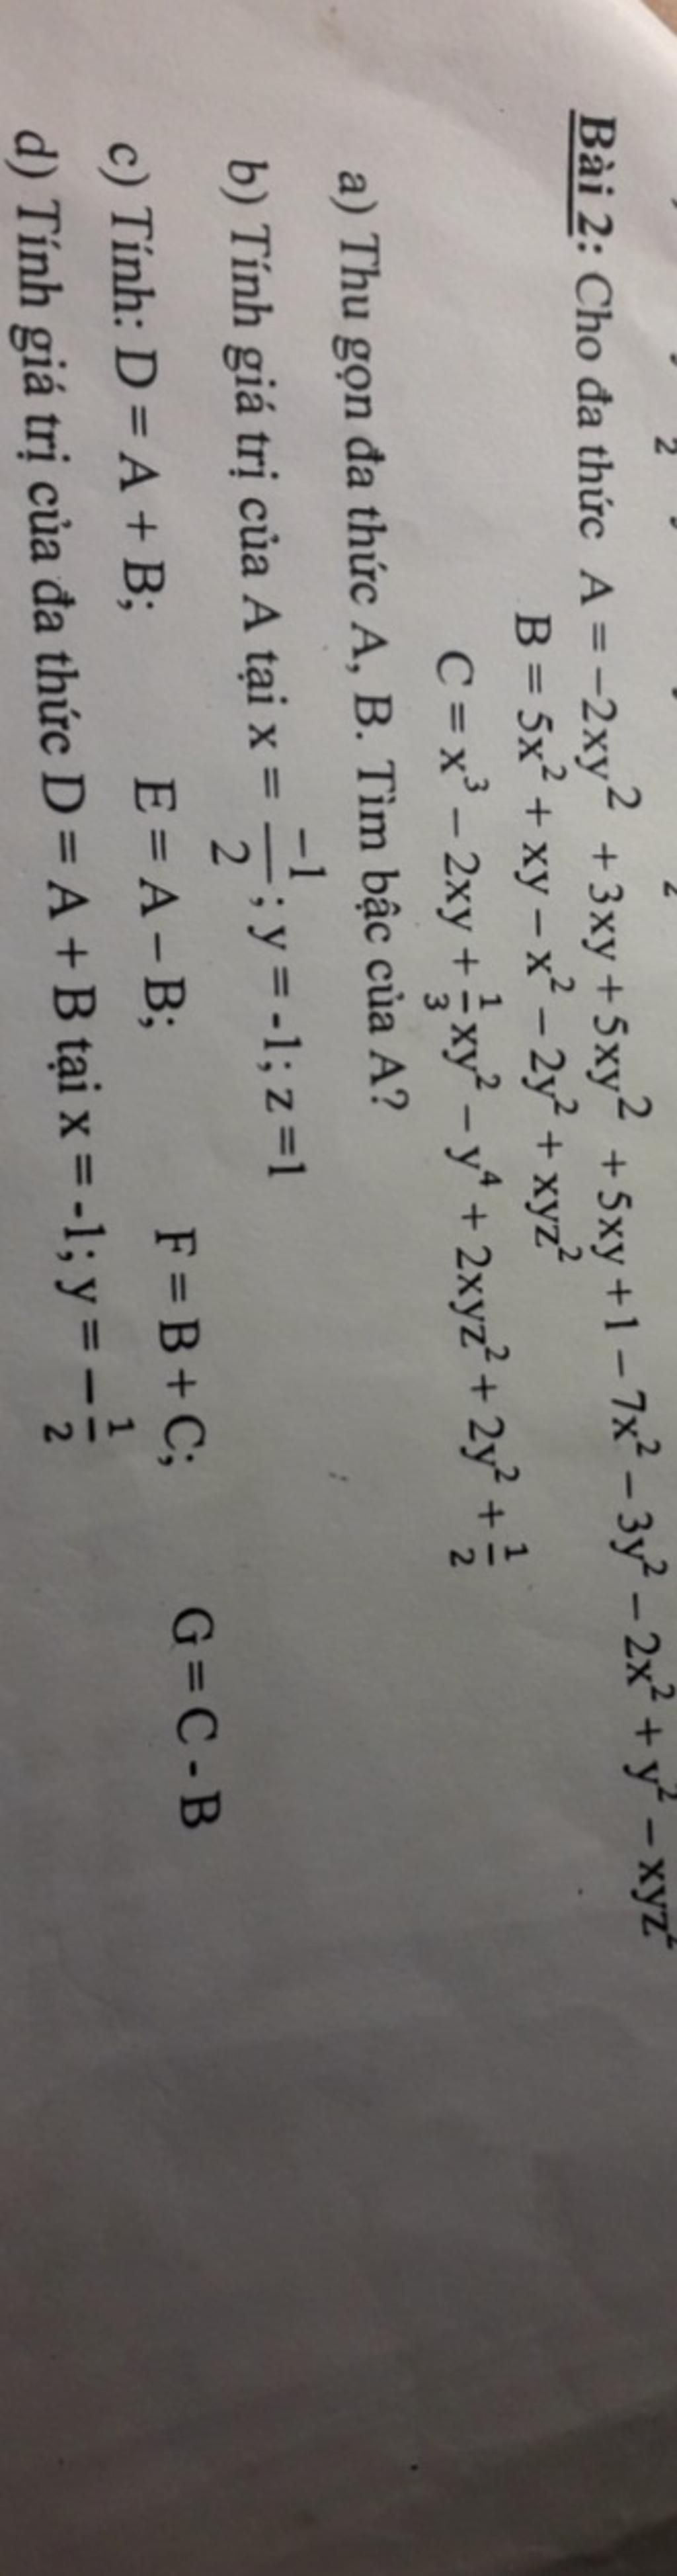 Bài 2: Cho đa thức A = −2xy² + 3xy + 5xy² + 5xy + 1 − 7x² − 3y² − 2x² + y² − xyz²
B = 5x² + xy − x² − 2y² + xyz²
C = x³ − 2xy + 1/3 xy² − y⁴ + 2xyz² + 2y² + 1/2
a) Thu gọn đa thức A, B. Tìm bậc của A?
b) Tính giá trị của A tại x = −1/2 ; y = -1; z =1
c) Tính: D = A + B; E = A − B; F = B + C; G = C - B
d) Tính giá trị của đa thức D = A + B tại x = -1; y = − 1/2